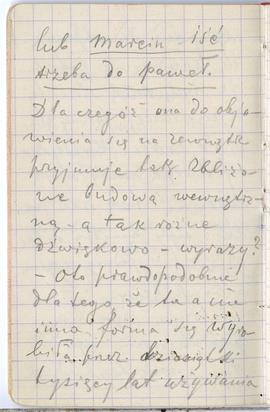 lub Marcin iść
trzeba do paweł.
Dlaczegóż ona do obja-
wienia się na zewnątrz
przyjmuje tak zbliżo-
ne budową wewnętrz-
ną – a tak różne
dźwiękowo – wyrazy?
– Oto prawdopodobnie
dlatego że ta a nie
inna forma się wyro-
biła przez dziesiątki
tysięcy lat używania